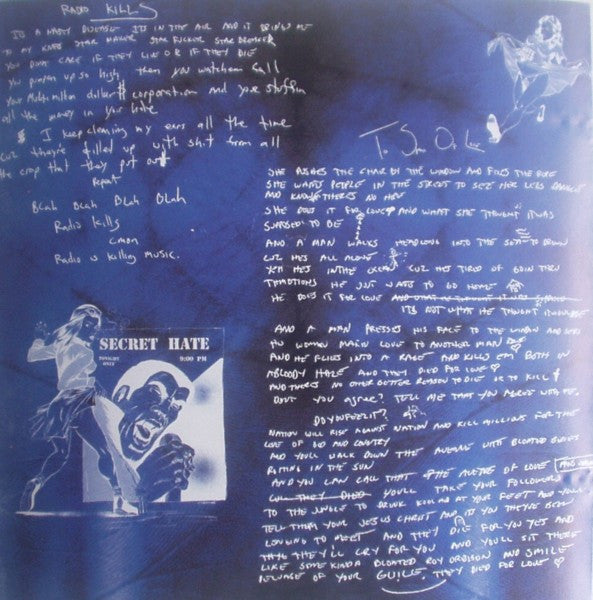 RADIO KILLS
IT'S A NASTY DISEASE IT'S IN THE AIR AND IT BRINGS ME
TO MY KNEES STAR MAKER STAR FUCKER STAR BREAKER
YOU DONT CARE IF THEY LIVE OR IF THEY DIE
You pump em up so high, then you watch em fall
Your Multi million dollar $ corporation and your stuffin
all the money in your
I keep cleaning my ears all the time
cuz they're filled up with shit from all
the crap that they put out
Repeat
Blah Blah Blah Blah
Radio Kills
cmon
Radio is killing music.
SECRET HATE
TONIGHT ONLY
9:00 PM
To
SHE PUSHES THE CHAIR BY THE WINDOW AND FIXES THE ROPE
SHE WANTS PEOPLE IN THE STREET TO SEE HER LEGS DANGLE
AND KNOW THERES NO HOPE
SHE DOES IT FOR LOVE AND WHAT SHE THOUGHT IT WAS
SUPPOSED TO BE
AND A MAN WALKS HEADLONG INTO THE SEA TO DROWN
CUZ HES ALL ALONE
YEH HES IN THE OCEAN CUZ HES TIRED OF GOIN THRU
THE MOTIONS HE JUST WANTS TO GO HOME
HE DOES IT FOR LOVE AND WHAT HE THOUGHT IT WAS
ITS NOT WHAT HE THOUGHT IT WOULD BE
AND A MAN PRESSES HIS FACE TO THE WINDOW AND SEES
HIS WOMEN MAKIN LOVE TO ANOTHER MAN
AND HE FLIES INTO A RAGE AND KILLS EM BOTH IN
A BLOODY HAZE AND THEY DIED FOR LOVE
AND THERES NO OTHER BETTER REASON TO DIE OR TO KILL
DONT YOU AGREE? TELL ME THAT YOU AGREE WITH ME.
DO YOU FEEL IT?
NATION WILL RISE AGAINST NATION AND KILL MILLIONS FOR THE
LOVE OF GOD AND COUNTRY
AND YOU'LL WALK DOWN THE AVENUE WITH BLOATED BODIES
ROTTING IN THE SUN
AND YOU CAN CALL THAT THE AVENUE OF LOVE AND
CUZ THEY DIED YOU'LL TAKE YOUR FOLLOWERS
TO THE JUNGLE TO DRINK KOOLAID AT YOUR FEET AND YOU'LL
TELL THEM YOUR JESUS CHRIST AND IT'S YOU THEY'VE BEEN
LONGING TO MEET AND THEY DIE FOR YOU YES AND
THEY'LL CRY FOR YOU AND YOU'LL SIT THERE
LIKE SOME KINDA BLOATED ROY ORBISON AND SMILE
BECAUSE OF YOUR GUILE. THEY DIED FOR LOVE